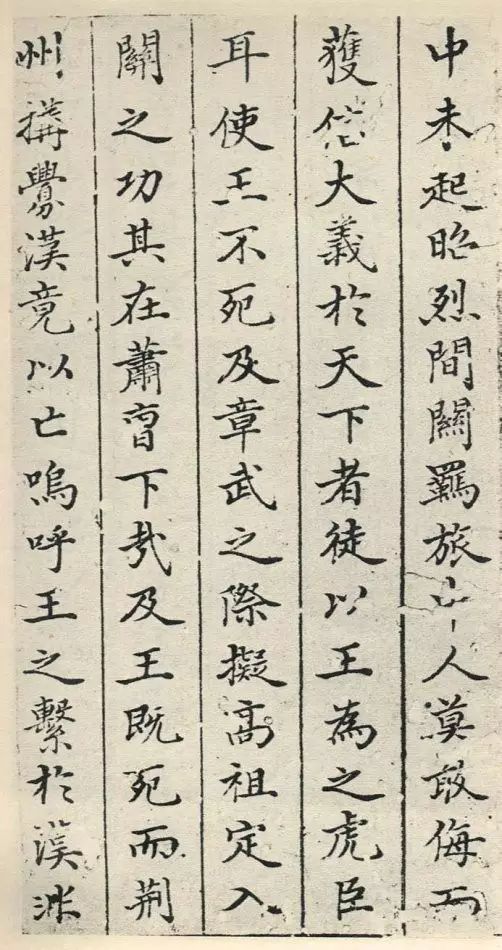 中未起昭烈間關羈旅中人莫敢侮而
獲信大義於天下者徒以王為之虎臣
耳使王不死及章武之際擬高祖定入
關之功其在蕭曹下哉及王既死而荆
州搆釁漢竟以亡嗚呼王之繫於漢非